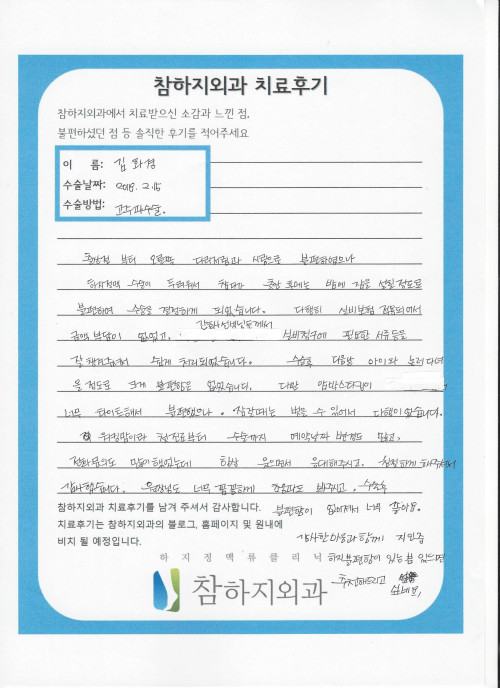 참하지외과 치료후기
참하지외과에서 치료받으신 소감과 느낀 점,
불편하셨던 점 등 솔직한 후기를 적어주세요
이 름: 김화경
수술날짜: 2018. 2. 15
수술방법: 고주파수술.
출산전 부터 오른쪽 다리저림과 시림으로 불편하였으나
하지정맥 수술이 두려워서 출산 후에는 밤에 잠을 설칠정도로
불편하여 수술을 결정하게 되었습니다. 다행히 실비보험 적용되어서
금액 부담이 없었고, 간호사선생님들께서 실비청구에 필요한 서류등을
잘 챙겨주셔서 쉽게 처리되었습니다. 수술후 다음날 아이와 놀러 다녀
올 정도로 크게 불편함도 없었습니다. 다만 압박스타킹이
너무 타이트해서 불편했으나 잠잘때는 벗을 수 있어서 다행이었습니다.
첫진료부터 수술까지 예약날짜 변경도 많고,
전화문의도 많이했었는데 항상 웃으면서 응대해주시고, 친절하게 해주셔서
감사했습니다. 원장님도 너무 꼼꼼하게 봐주시고. 수술후
불편함이 없어져서 너무 좋아요.
참하지외과 치료후기를 남겨 주셔서 감사합니다.
치료후기는 참하지외과의 블로그, 홈페이지 및 원내에
비치 될 예정입니다.
감사한 마음과 함께 지인중
하지불편함이 있는 분 있으면
추천해드리고
하지정맥류클리닉
참하지외과